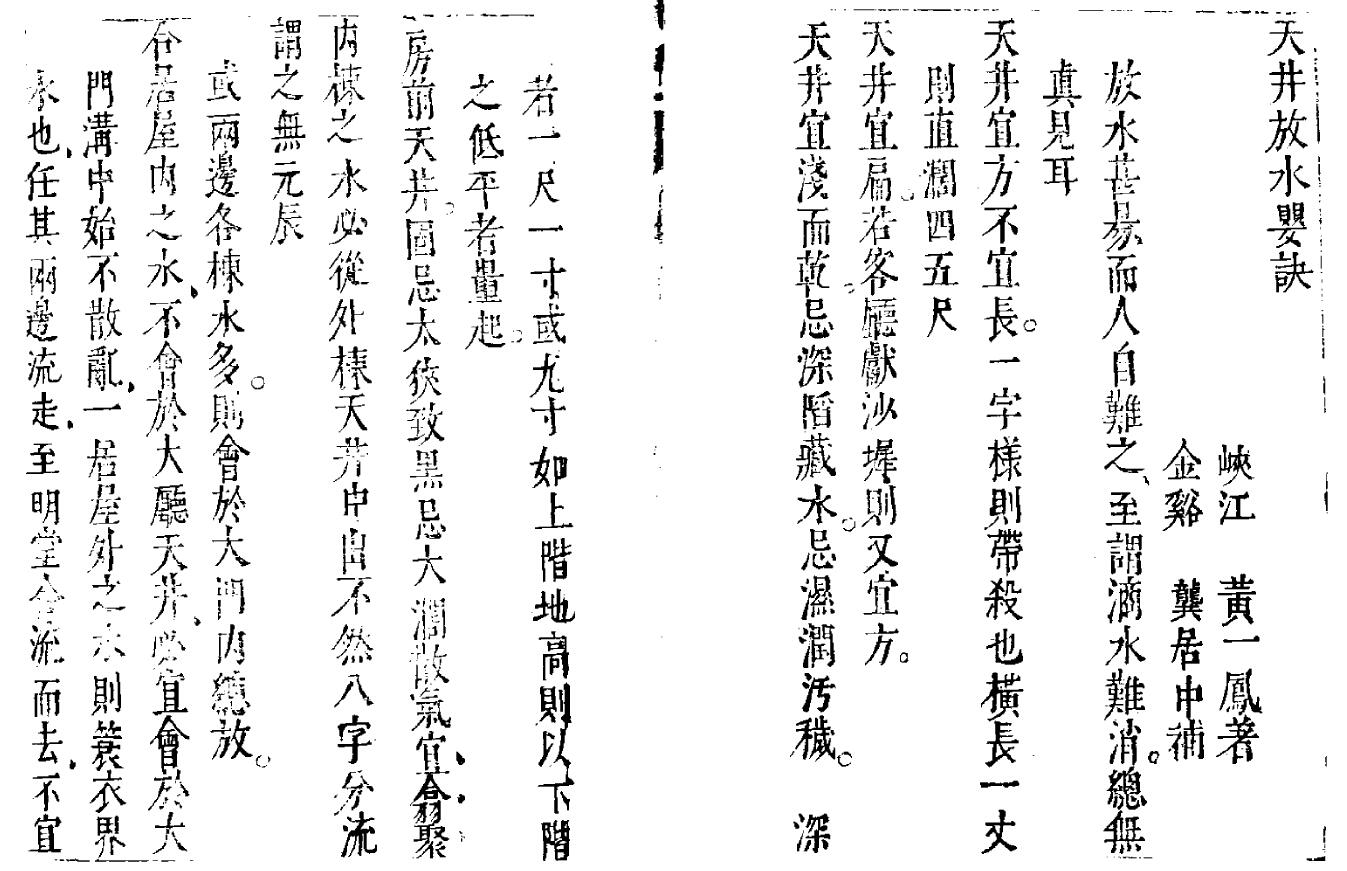 天井放水嬰訣
峽江　黃一鳳著
金谿　龔居中補
放水甚易而人自難之、至謂滴水難消。總無
真見耳
天井宜方不宜長。一字樣則帶殺也橫長一丈
則直濶四五尺
天井宜扁。若客廳獻沙墀則又宜方。
天井宜淺而乾。忌深陷藏水。忌濕潤汚穢。　深
若一尺一寸或尤寸如上階地高則以下階
之低平者量起。
房前天井。固忌太狹致黑忌大濶散氣宜、翕、聚
内棟之水必從外棟天井中出不然八字分流
謂之無元辰
或兩邊各棟水多。則會於大門内總放。
合居屋内之水、不會於大廳天井、必宜會於大
門溝中始不散亂、一居屋外之水則簔衣界
水也、任其兩邊流走、至明堂會流而去、不宜